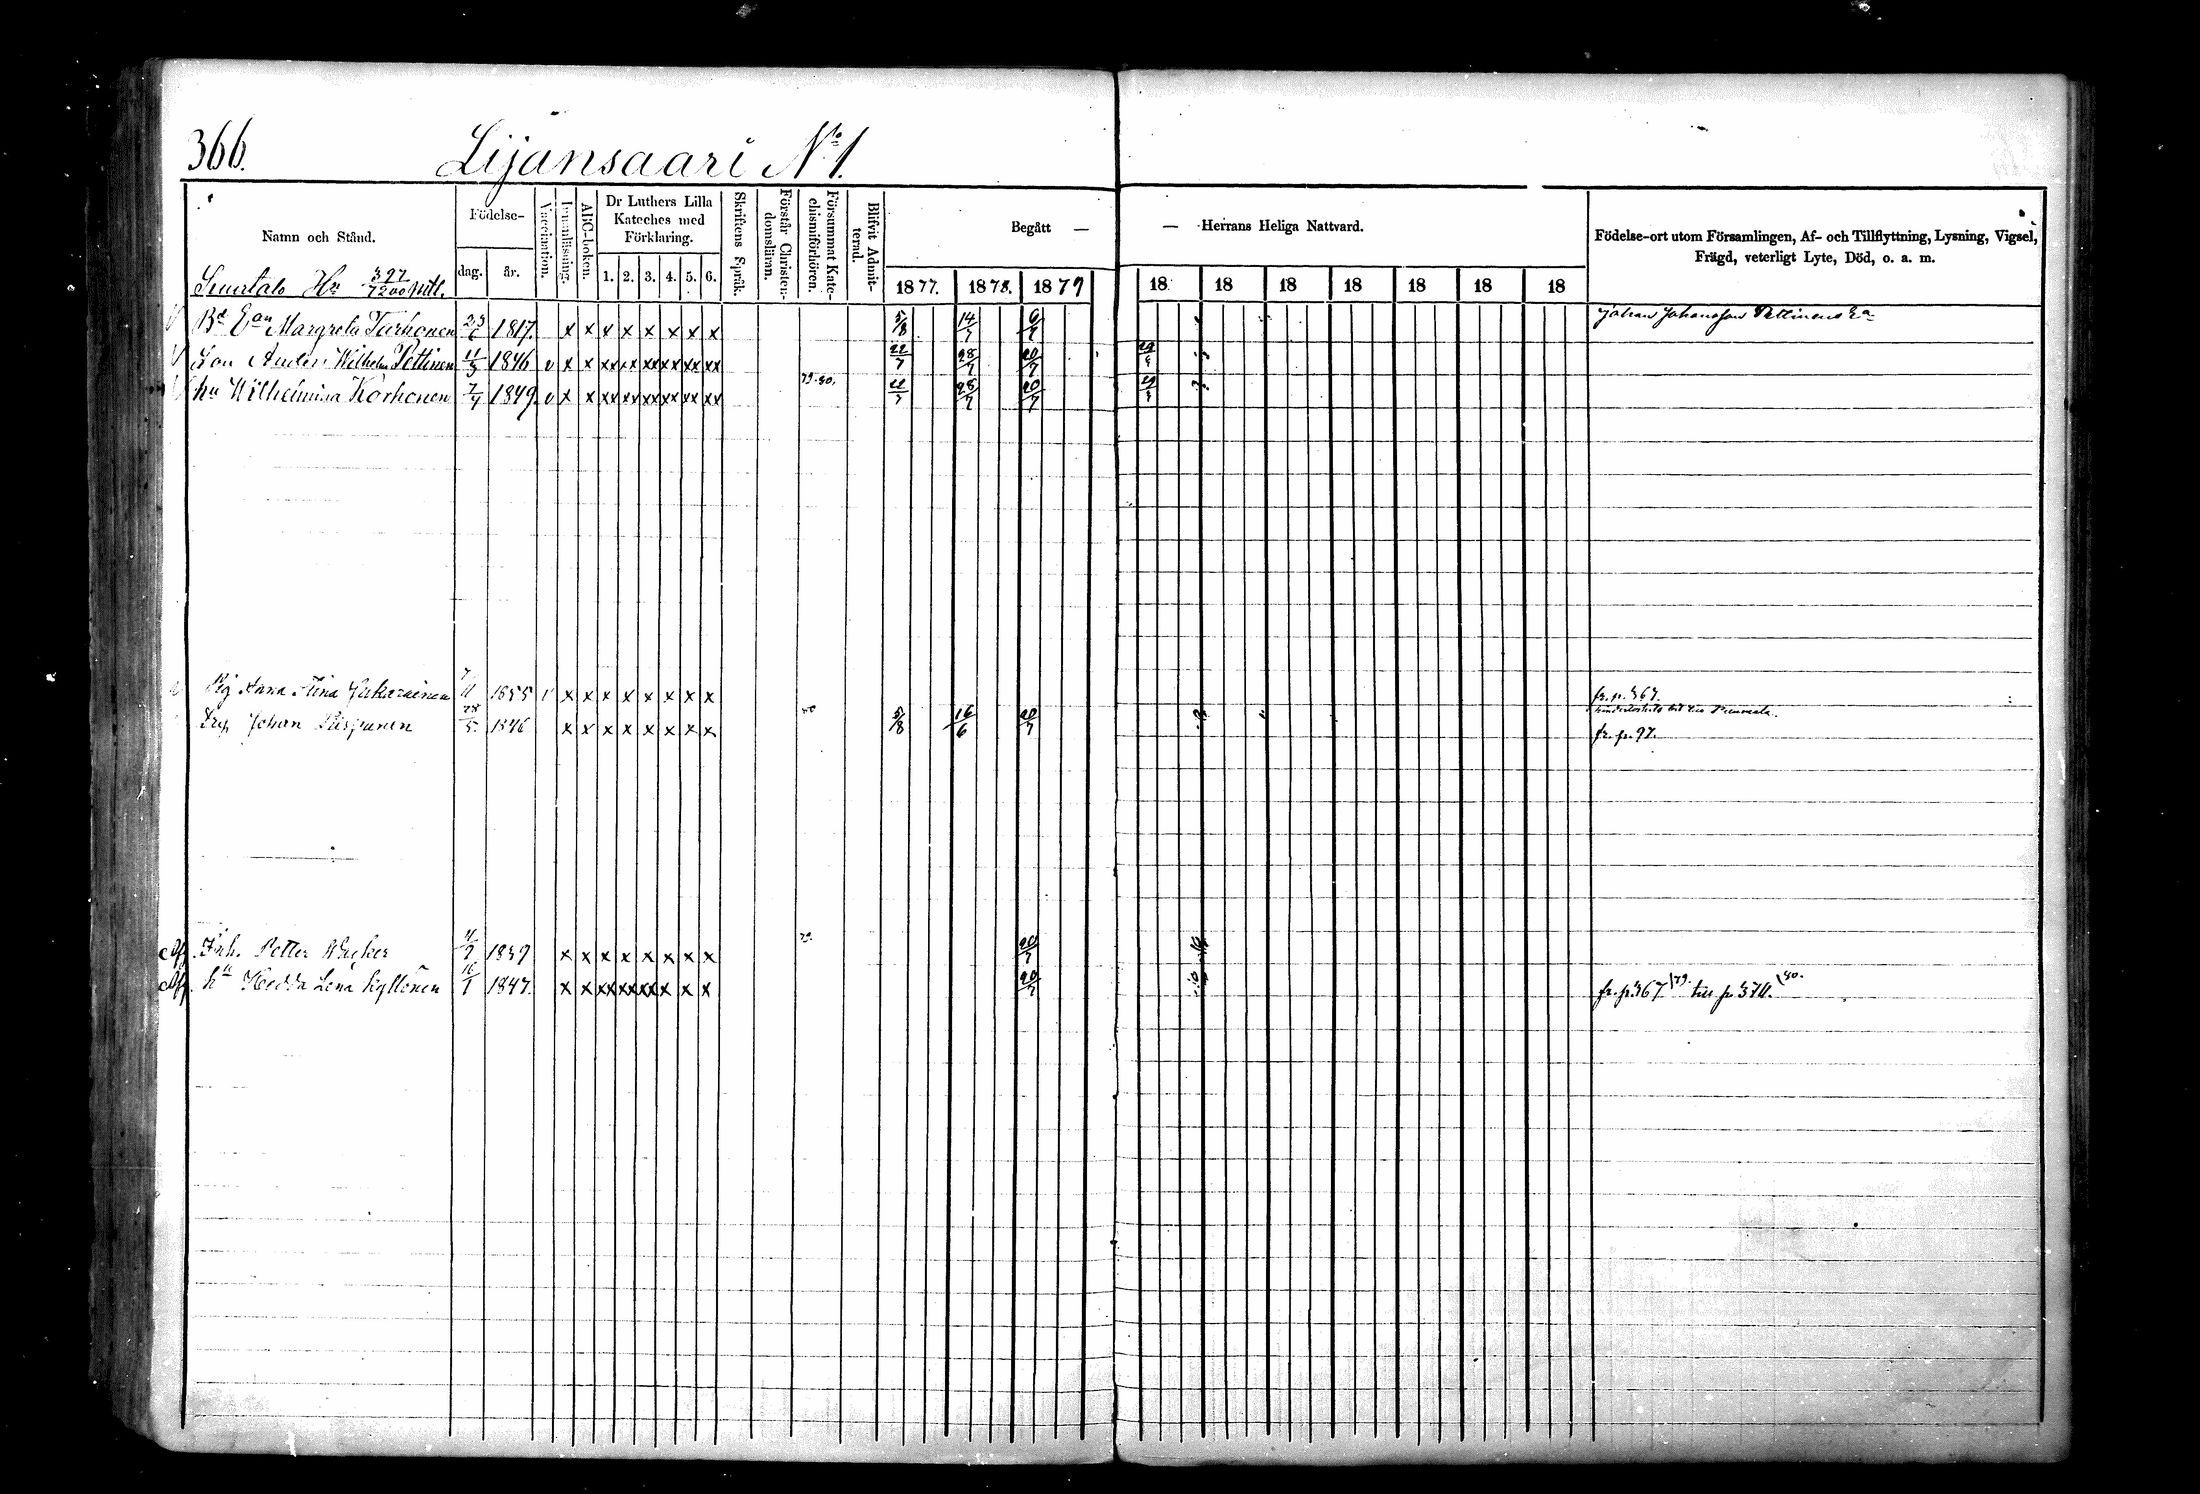 366. Lijansaari No 1.
Namn och Stånd. Födelse- dag. år. Vaccination. Innanläsning. ABC-boken. Dr Luthers Lilla Kateches med Förklaring. 1. 2. 3. 4. 5. 6. Skriftens Språk. Förstår Christendomsläran. Försummat Katechismiförhören. Blifvit Admitterad. Begått — — Herrans Heliga Nattvard. Födelse-ort utom Församlingen, Af- och Tillflyttning, Lysning, Vigsel, Frägd, veterligt Lyte, Död, o. a. m.
1877. 1878. 1879 18 18 18 18 18 18 18
397/7200 mtl.
Bd Ean Margreta Turhonen 1817. x x x x x x x x 5/8 14/7 6/7 Johan Johansson Pettinens Ea
Son Anders Wilhelm Pettinen 11/3 1846 v x x xx xx xx xx xx xx 22/7 28/7 20/7
hu Wilhelmina Korhonen 7/4 1849. v x x xx xx xx xx xx xx 79.80. 22/7 28/7 20/7
Pig Anna Stina 7/11 1855 v x x x x x x x x fr. p. 367.
Johan 28/5 1846 x x x x x x x x 5/8 16/6 20/7 fr. p. 97.
Inh. Petter 1839 x x x x x x x x 79. 20/7
hu Hedda Lena Kyllönen 16/1 1847. x x xx xx xx x x x 20/7 fr. p. 367 /79. till p. 370. /80.